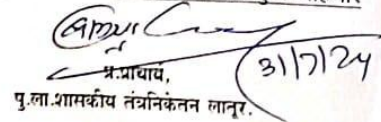 31/7/24
प्र.प्राचार्य,
पु.ला.शासकीय तंत्रनिकेतन लातूर.